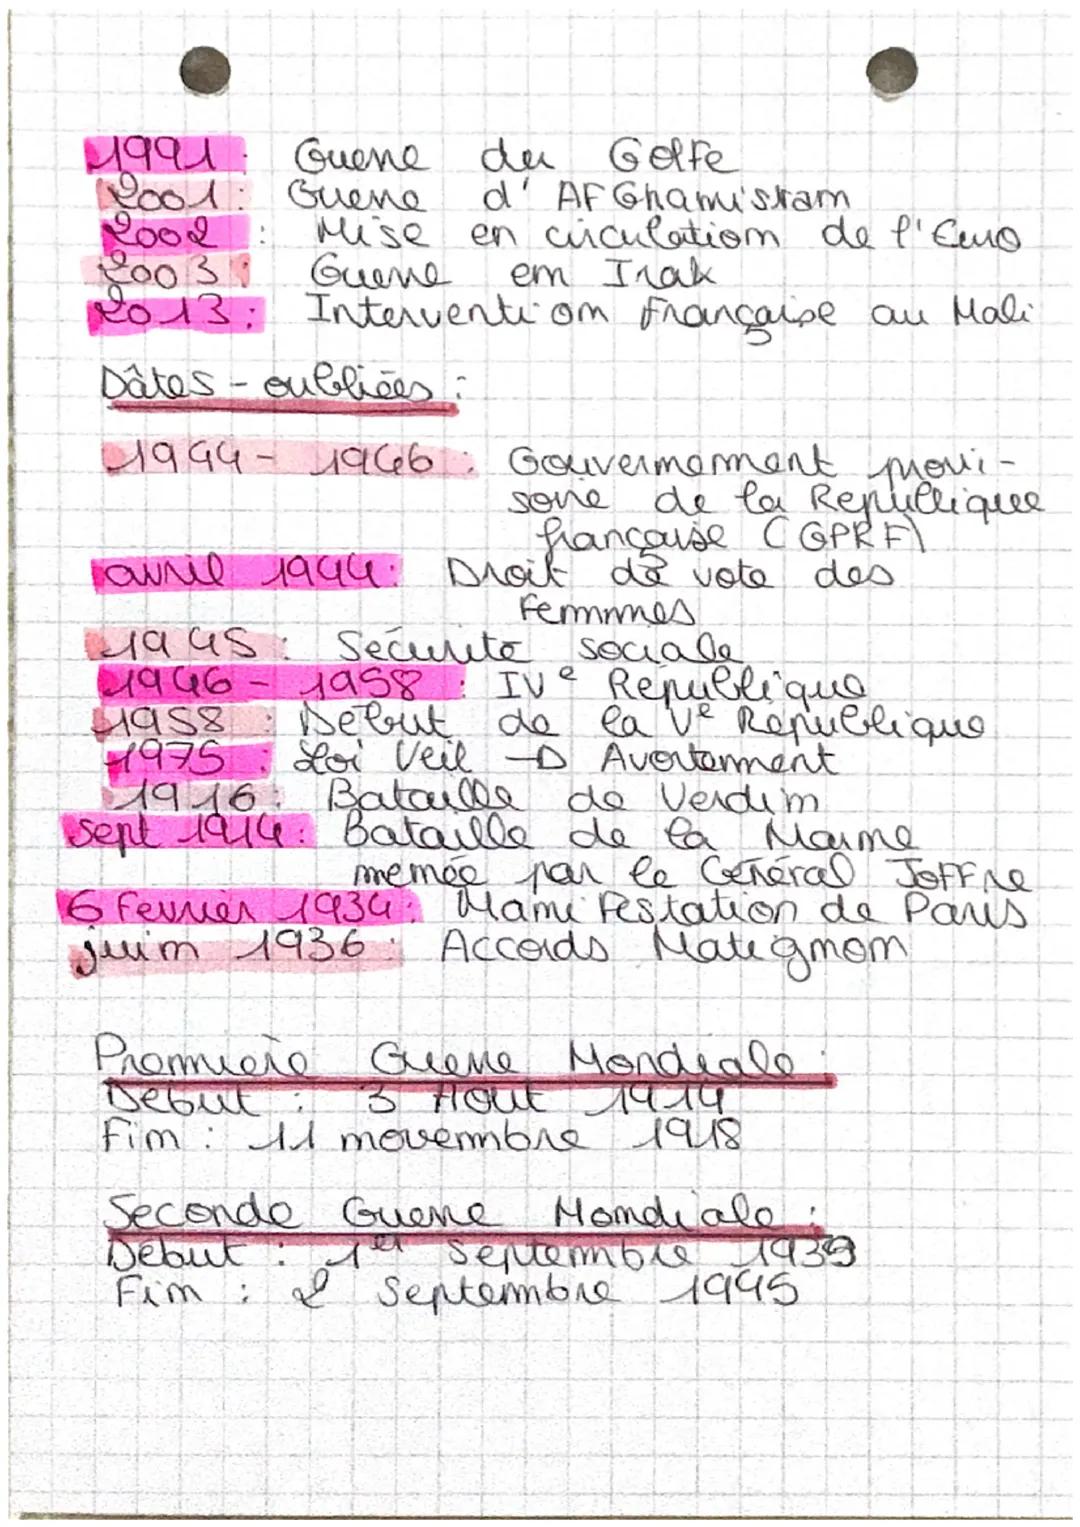 1991 : Guerre du Golfe
2001 : Guerre d'AFGhanistan
2002 : Mise en circulation de l'Euro
2003 : Guerre en Irak
2013 : Intervention Française au Mali
Dâtes - oubliées :
1944 - 1946 : Gouvernement provi-
soire de la Républiquee
française (GPRF)
avril 1944 : Droit de vote des
Femmes
1945 : Sécurité sociale
1946 - 1958 : IVe République
1958 : Début de la Ve République
1975 : Loi Veil → Avortement
1916 : Bataille de Verdun
sept 1914 : Bataille de la Marne
menée par le Général JoFFre
6 Fevrier 1934 : ManiFestation de Paris
juin 1936 : Accords Matignon
Première Guerre Mondiale :
Début : 3 Août 1914
Fin : 11 novembre 1918
Seconde Guerre Mondiale :
Début : 1er Septembre 1939
Fin : 2 Septembre 1945